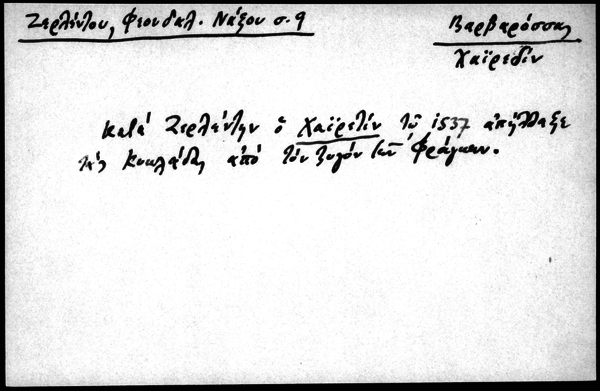 Ζερλέντου, Φεουδαλ. Νάξου σ. 9
Βαρβαρόσσας
Χαϊρεδίν
Κατά Ζερλέντην ὁ Χαϊρετίν τῷ 1537 ἀπήλλαξε
τάς Κυκλάδας ἀπό τόν ζυγόν τῶν Φράγκων.